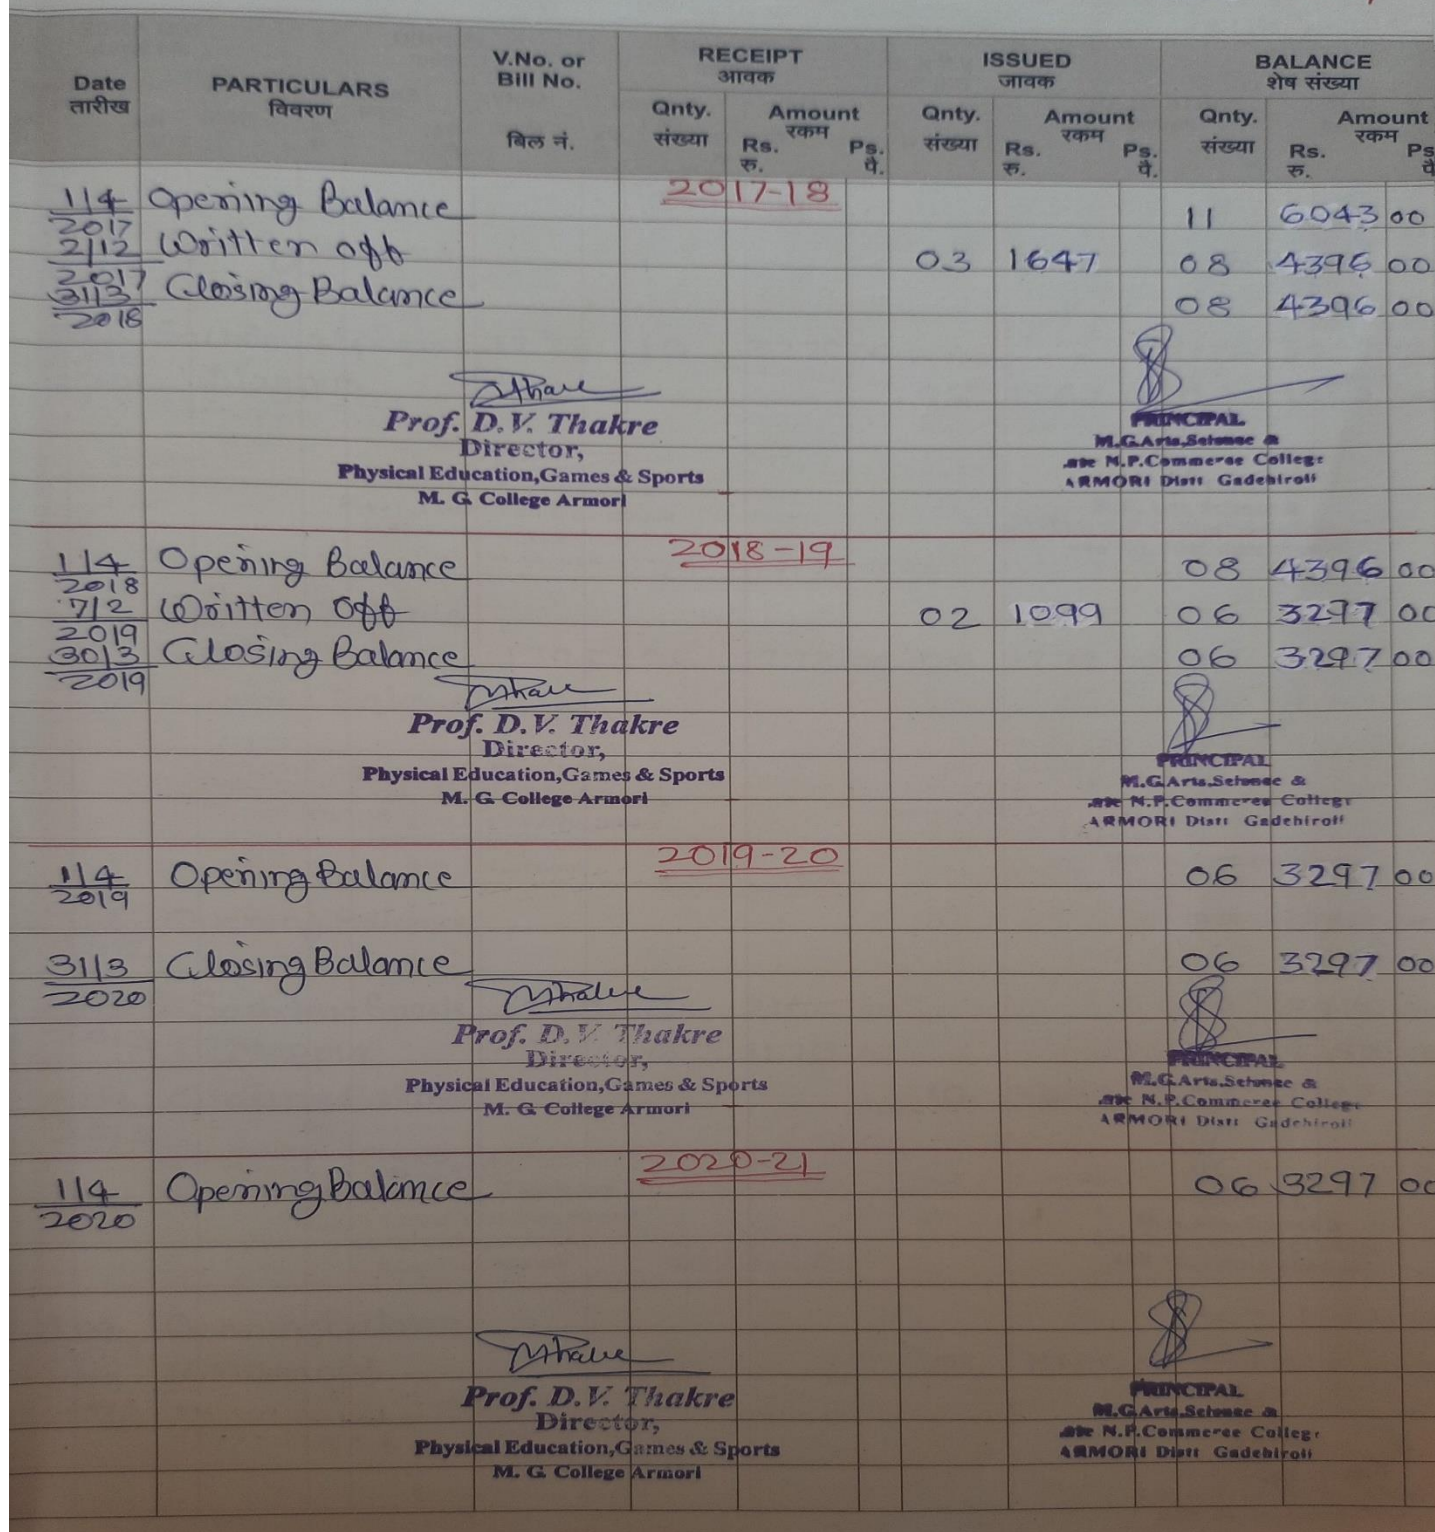 Date PARTICULARS V.No. or Bill No. RECEIPT ISSUED BALANCE
तारीख विवरण बिल नं. आवक जावक शेष संख्या
Qnty. Amount Qnty. Amount Qnty. Amount
संख्या रकम संख्या रकम संख्या रकम
Rs. Ps. Rs. Ps. Rs. Ps
रु. पै. रु. पै. रु. पै
2017-18
1/4/2017 Opening Balance 11 6043 00
2/12/2017 Written off 03 1647 08 4396 00
31/3/2018 Closing Balance 08 4396 00
Prof. D.V. Thakre
Director,
Physical Education,Games & Sports
M. G. College Armori
PRINCIPAL
M.G.Arts,Science &
N.P.Commerce College
ARMORI Distt Gadchiroli
2018-19
1/4/2018 Opening Balance 08 4396 00
7/2/2019 Written off 02 1099 06 3297 00
30/3/2019 Closing Balance 06 3297 00
Prof. D.V. Thakre
Director,
Physical Education,Games & Sports
M. G. College Armori
PRINCIPAL
M.G.Arts,Science &
N.P.Commerce College
ARMORI Distt Gadchiroli
2019-20
1/4/2019 Opening Balance 06 3297 00
31/3/2020 Closing Balance 06 3297 00
Prof. D.V. Thakre
Director,
Physical Education,Games & Sports
M. G. College Armori
PRINCIPAL
M.G.Arts,Science &
N.P.Commerce College
ARMORI Distt Gadchiroli
2020-21
1/4/2020 Opening Balance 06 3297 00
Prof. D.V. Thakre
Director,
Physical Education,Games & Sports
M. G. College Armori
PRINCIPAL
M.G.Arts,Science &
N.P.Commerce College
ARMORI Distt Gadchiroli